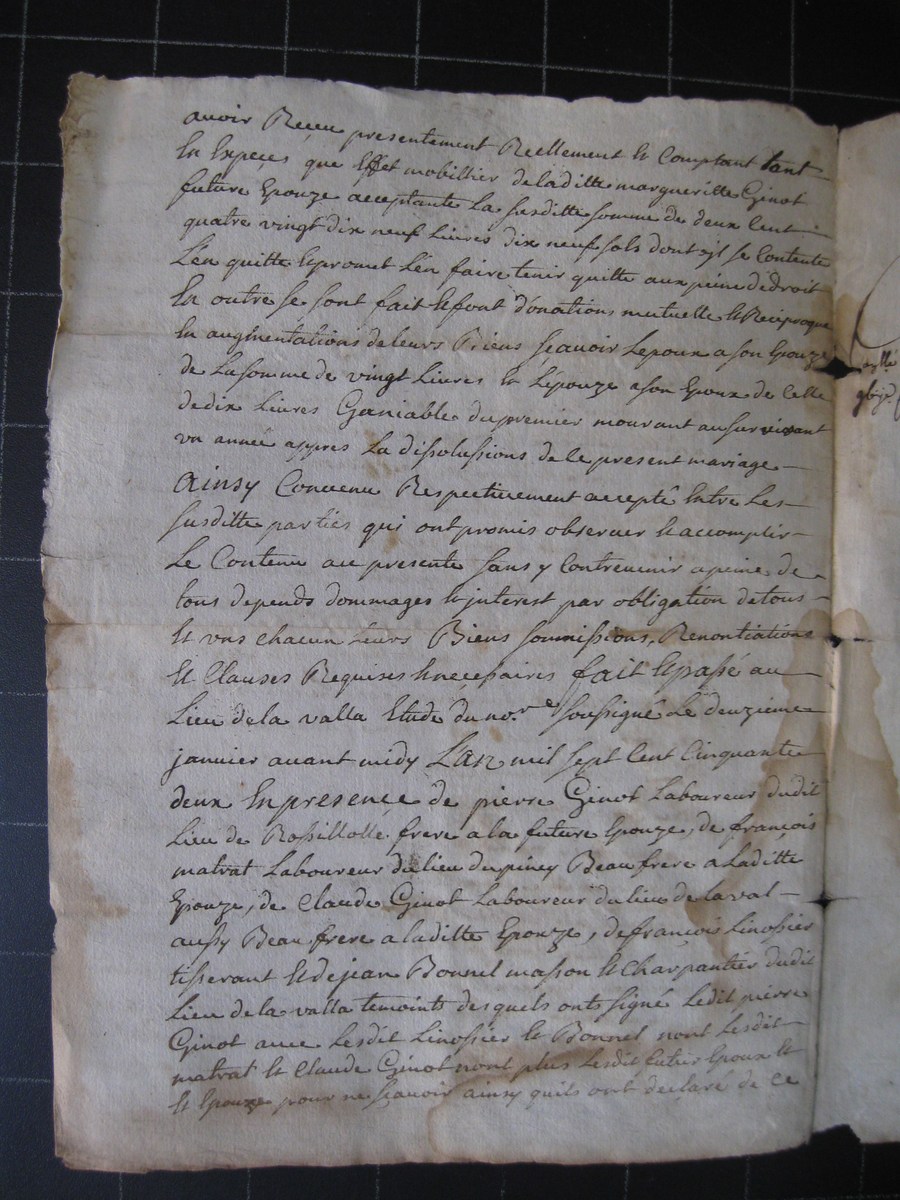 avoir Reçeu presentement Reellement et Comptant tant
En Espeçes que Effet mobillier de laditte margueritte Ginot
future Epouze acceptante La susditte somme de deux Cent
quatre vingt dix neuf Livres dix neuf sols dont yl se Contente
L'en quitte Et promet L'en faire tenir quitte aux peine de droit
En outre se sont fait Et font d'onations mutuelle et Reciproque
En augmentations de leurs Biens sçavoir Lepoux a son Epouze
de La somme de vingt Livres Et L'épouze a son Epoux de Celle
de dix Livres Ganiable du premier mourant au survivant
un année appres La dissolussions de le present mariage
Ainsy Convenu Respectivement accepté Entre Les
susditte parties qui ont promis observer Et accomplir
Le Contenu au presente sans y Contrevenir a peine de
tous depends dommages Et jnterest par obligation de tous
Et uns chacun Leurs Biens soumissions, Renontiations
Et Clauses Requises Et neçessaires fait Et passé au
Lieu de la valla Etude du no.re soussigné Le deuzieme
janvier avant midy L'an mil sept Cent Cinquante
deux En presençe de pierre Ginot Laboureur dudit
Lieu de Rossillolle frere a la future Epouze, de françois
matrat Laboureur du lieu du piney Beaufrere a Laditte
Epouze, de Claude Ginot Laboureur du lieu de laval
aussy Beaufrere a laditte Epouze, de françois Linossier
tisserant Et de jean Bonnel masson Et Charpantier dudit
Lieu de la valla temoints desquels onts signé Ledit pierre
Ginot avec Lesdit Linossier Et Bonnel nont Lesdit
matrat Et Claude Ginot nont plus Lesdit futur Epoux Et
Et Epouze pour ne sçavoir ainsy quils ont declaré de Ce